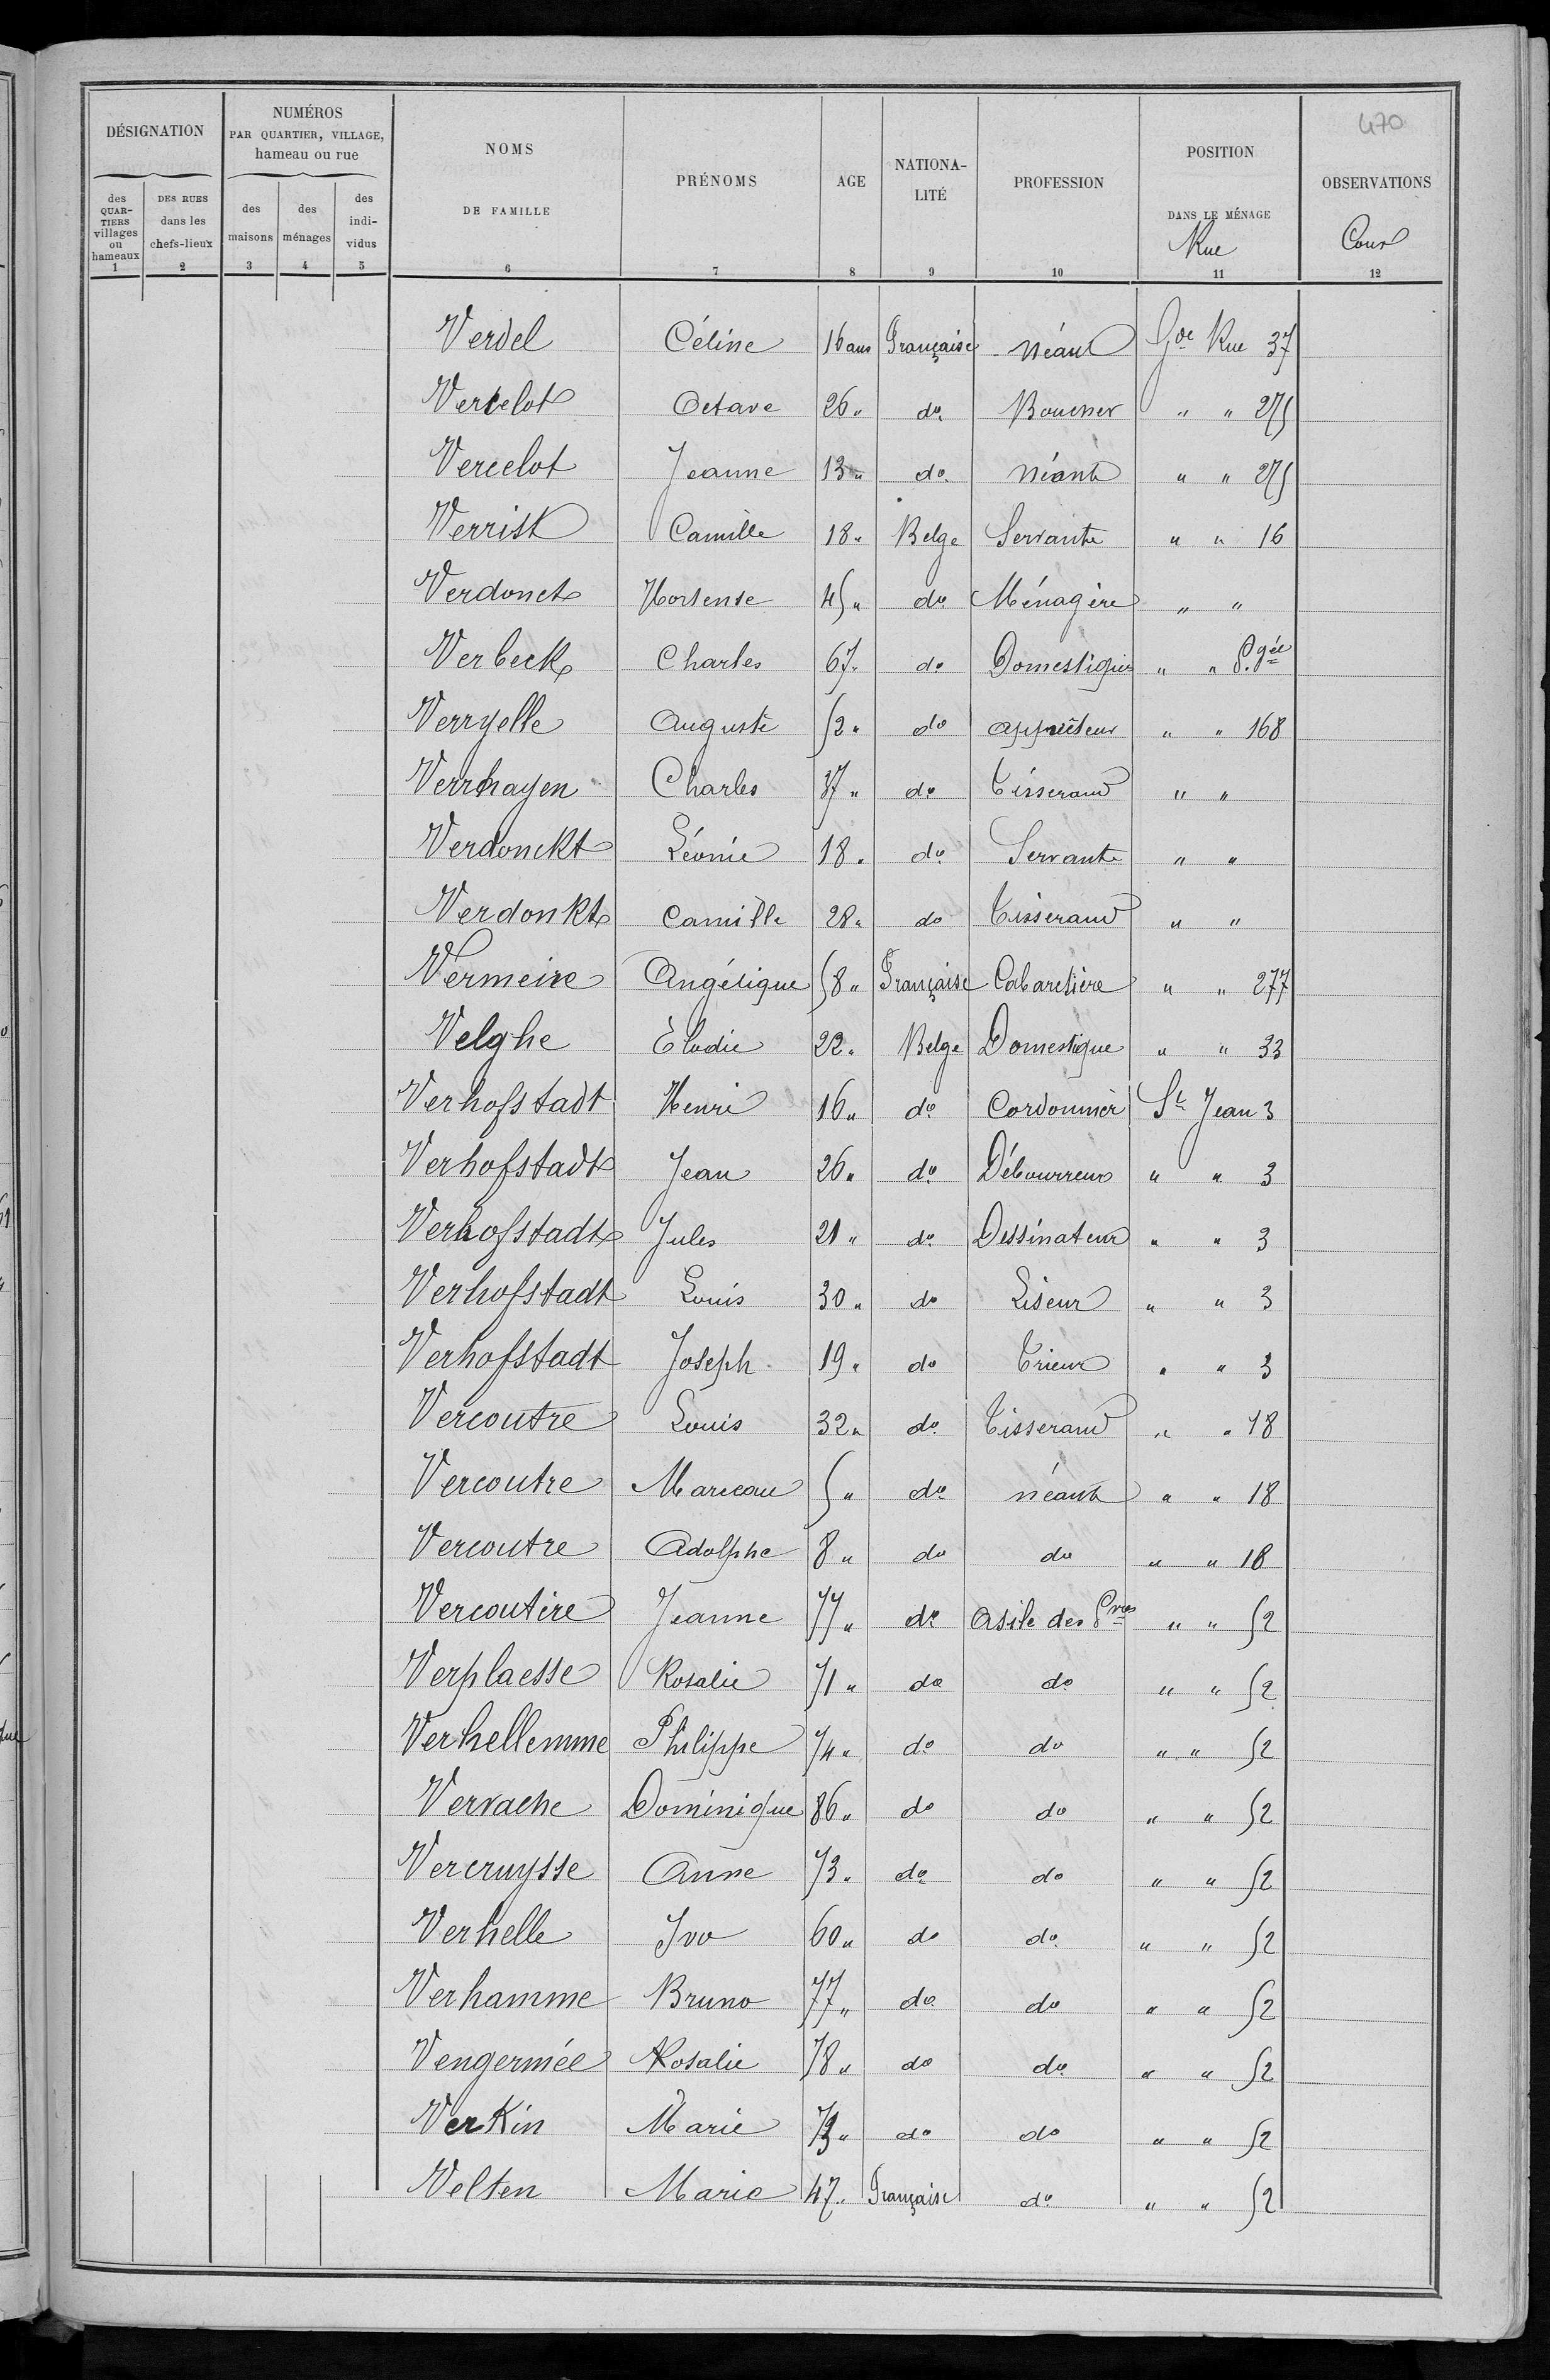 470
DÉSIGNATION
NUMÉROS
PAR QUARTIER, VILLAGE,
hameau ou rue
NOMS
DE FAMILLE
PRÉNOMS
AGE
NATIONA-
LITÉ
PROFESSION
POSITION
DANS LE MÉNAGE
Rue
OBSERVATIONS
Cour
des
QUAR-
TIERS
villages
ou
hameaux
DES RUES
dans les
chefs-lieux
des
maisons
des
ménages
des
indi-
vidus
1 2 3 4 5 6 7 8 9 10 11 12
Verdel Céline 16 ans Française néant Gde Rue 37
Vercelot Octave 26 " do Boucher " " 275
Vercelot Jeanne 13 " do Néant " " 275
Verrist Camille 18 " Belge Servante " " 16
Verdonct Hortense 45 " do Ménagère " "
Verbeck Charles 67 " do Domestique " " P.gée
Verryelle Auguste 52 " do appréteur " " 168
Verrhayen Charles 37 " do Tisserand " "
Verdonckt Léonie 18 " do Servante " "
Verdonkt Camille 28 " do Tisserand " "
Vermeire Angélique 58 " Française Cabaretière " " 277
Velghe Élodie 22 " Belge Domestique " " 33
Verhofstadt Henri 16 " do Cordonnier St Jean 3
Verhofstadt Jean 26 " do Débourreur " " 3
Verhofstadt Jules 21 " do Dessinateur " " 3
Verhofstadt Louis 30 " do Liseur " " 3
Verhofstadt Joseph 19 " do Trieur " " 3
Vercoutre Louis 32 " do Tisserand " " 18
Vercoutre Marceau 5 " do néant " " 18
Vercoutre Adolphe 8 " do do " " 18
Vercoutire Jeanne 77 " do Asile des Pvres " " 52
Verplaesse Rosalie 71 " do do " " 52
Verhellemme Philippe 74 " do do " " 52
Vervache Dominique 86 " do do " " 52
Vercruysse Anne 73 " do do " " 52
Verhelle Ivo 60 " do do " " 52
Verhamme Bruno 77 " do do " " 52
Vengermée Rosalie 78 " do do " " 52
Verkin Marie " do do " " 52
Velten Marie 47 " Française do " " 52